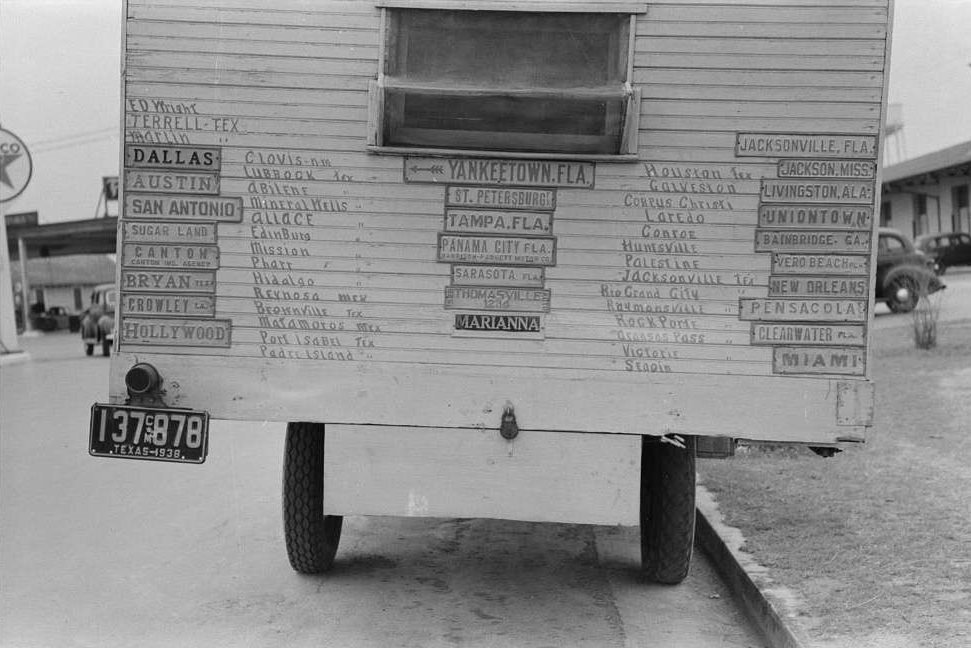 ED Wright
TERRELL-TEX
Marlin "
DALLAS
AUSTIN
SAN ANTONIO
SUGAR LAND
CANTON
CANTON INS. AGENCY
BRYAN TEX
CROWLEY LA
HOLLYWOOD
Clovis-nm
Lubbock Tex
abilene "
Mineral Wells "
allace "
EdinBurg "
Mission "
Pharr "
Hidalgo "
Reynosa mex
Brownville Tex
Matamoros mex
Port IsaBel Tex
Padre Island "
YANKEETOWN, FLA.
ST. PETERSBURG!
TAMPA, FLA.
PANAMA CITY FLA.
SARASOTA FLA.
THOMASVILLE
MARIANNA
Houston Tex
Galveston "
Corpus Christi "
Laredo "
Conroe "
Huntsville "
Palestine "
Jacksonville Tex
Rio Grand City "
Raymonsville "
Rock Porte "
aransas Pass "
Victoria "
JACKSONVILLE, FLA.
JACKSON, MISS.
LIVINGSTON, ALA.
UNIONTOWN,
BAINBRIDGE-GA.
VERO BEACH FLA.
NEW ORLEANS
PENSACOLA
CLEARWATER FLA.
MIAMI
CO
137 878
TEXAS-1938